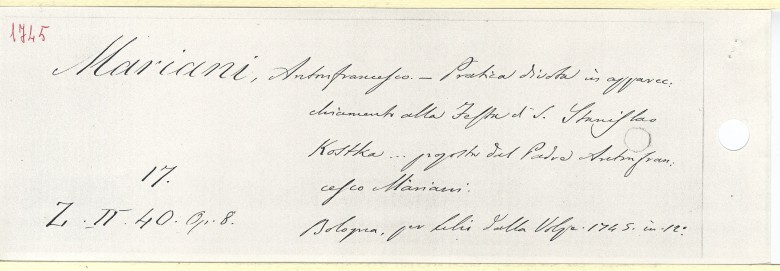 1745
Mariani, Antonfrancesco. — Pratica divota in apparec-
chiamento alla Festa di S. Stanislao
Kostka ... proposta dal Padre Antonfran-
cesco Mariani.
17.
Z. II. 40. Op. 8.
Bologna, per Lelio dalla Volpe. 1745. in-12°